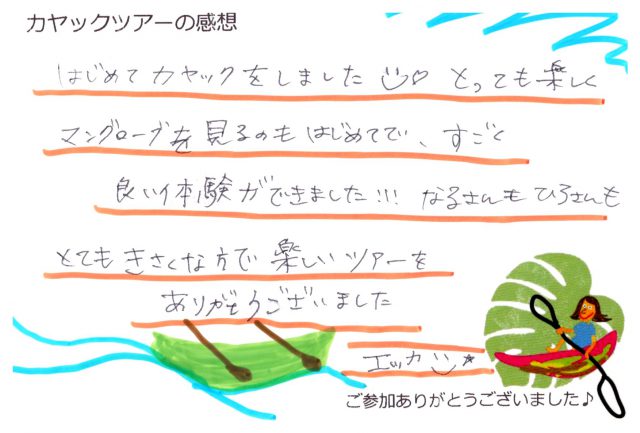 カヤックツアーの感想
はじめてカヤックをしました とっても楽しく
マングローブを見るのもはじめてで、すごく
良い体験ができました!!! なるさんもひろさんも
とてもきさくな方で楽しいツアーを
ありがとうございました
エッカ
ご参加ありがとうございました♪